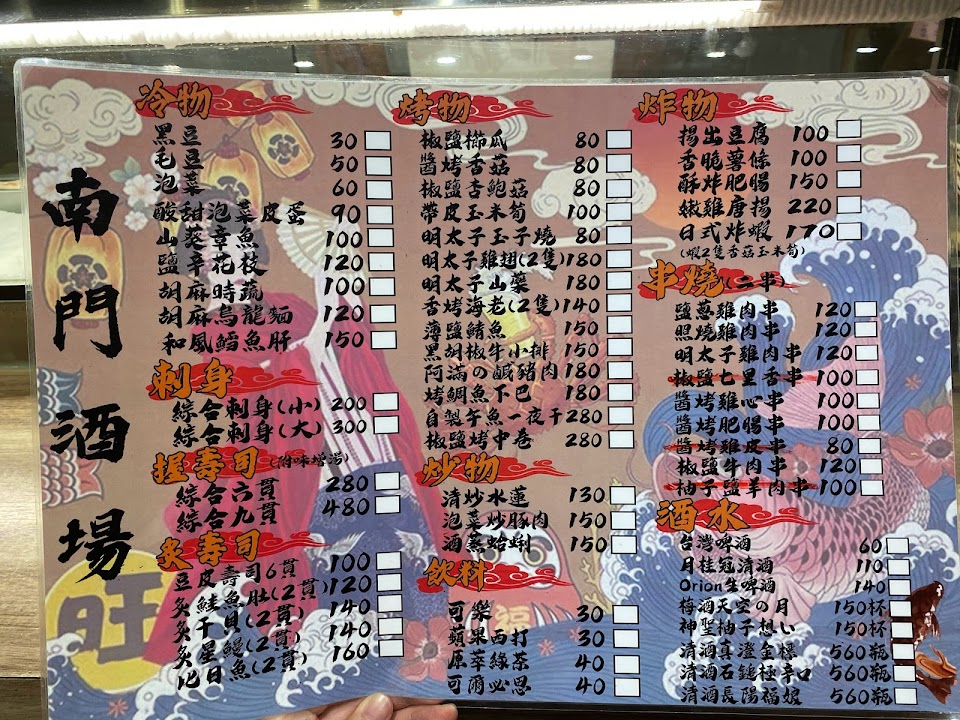 南門酒場
冷物
黑豆 30
毛豆 50
泡菜 60
酸甜泡菜皮蛋 90
山葵章魚 100
鹽辛花枝 120
胡麻時蔬 100
胡麻烏龍麵 120
和風鱈魚肝 150
刺身
綜合刺身(小) 200
綜合刺身(大) 300
握壽司(附味增湯)
綜合六貫 280
綜合九貫 480
炙壽司
豆皮壽司6貫 100
炙鮭魚肚(2貫) 120
炙干貝(2貫) 140
炙星鰻(2貫) 140
比目魚(2貫) 160
烤物
椒鹽櫛瓜 80
醬烤香菇 80
椒鹽杏鮑菇 80
帶皮玉米筍 100
明太子玉子燒 80
明太子雞翅(2隻) 180
明太子山藥 180
香烤海老(2隻) 140
薄鹽鯖魚 150
黑胡椒牛小排 150
阿滿の鹹豬肉 180
烤鯛魚下巴 180
自製午魚一夜干 280
椒鹽烤中卷 280
炒物
清炒水蓮 130
泡菜炒豚肉 150
酒蒸蛤蜊 150
飲料
可樂 30
蘋果西打 30
原萃綠茶 40
可爾必思 40
炸物
揚出豆腐 100
香脆薯條 100
酥炸肥腸 150
嫩雞唐揚 220
日式炸蝦 170
(蝦2隻香菇玉米筍)
串燒(二串)
鹽蔥雞肉串 120
照燒雞肉串 120
明太子雞肉串 120
椒鹽七里香串 100
醬烤雞心串 100
醬烤肥腸串 100
醬烤雞皮串 80
椒鹽牛肉串 120
柚子鹽羊肉串 100
酒水
台灣啤酒 60
月桂冠清酒 110
Orion生啤酒 140
梅酒天空の月 150杯
神聖柚子想い 150杯
清酒真澄金標 560瓶
清酒石鎚極辛口 560瓶
清酒長陽福娘 560瓶
旺
福